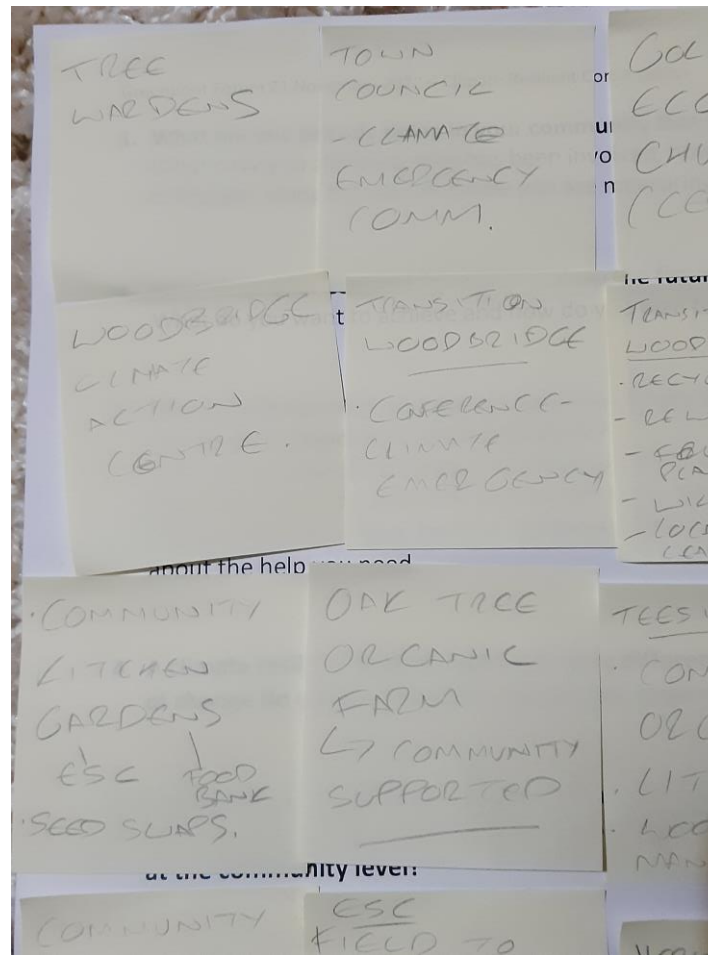 TREE
WARDENS
TOWN
COUNCIL
- CLIMATE
EMERGENCY
COMM.
WOODBRIDGE
CLIMATE
ACTION
CENTRE.
TRANSITION
WOODBRIDGE
· CONFERENCE-
CLIMATE
EMERGENCY
TRANSIT
WOOD
· RECYC
- REW
- LOC
about the help you need
· COMMUNITY
KITCHEN
GARDENS
ESC FOOD
BANK
· SEED SWAPS.
OAK TREE
ORGANIC
FARM
↳ COMMUNITY
SUPPORTED
· CON
ORG
· LIT
MAN
at the community level?
COMMUNITY
ESC
FIELD TO